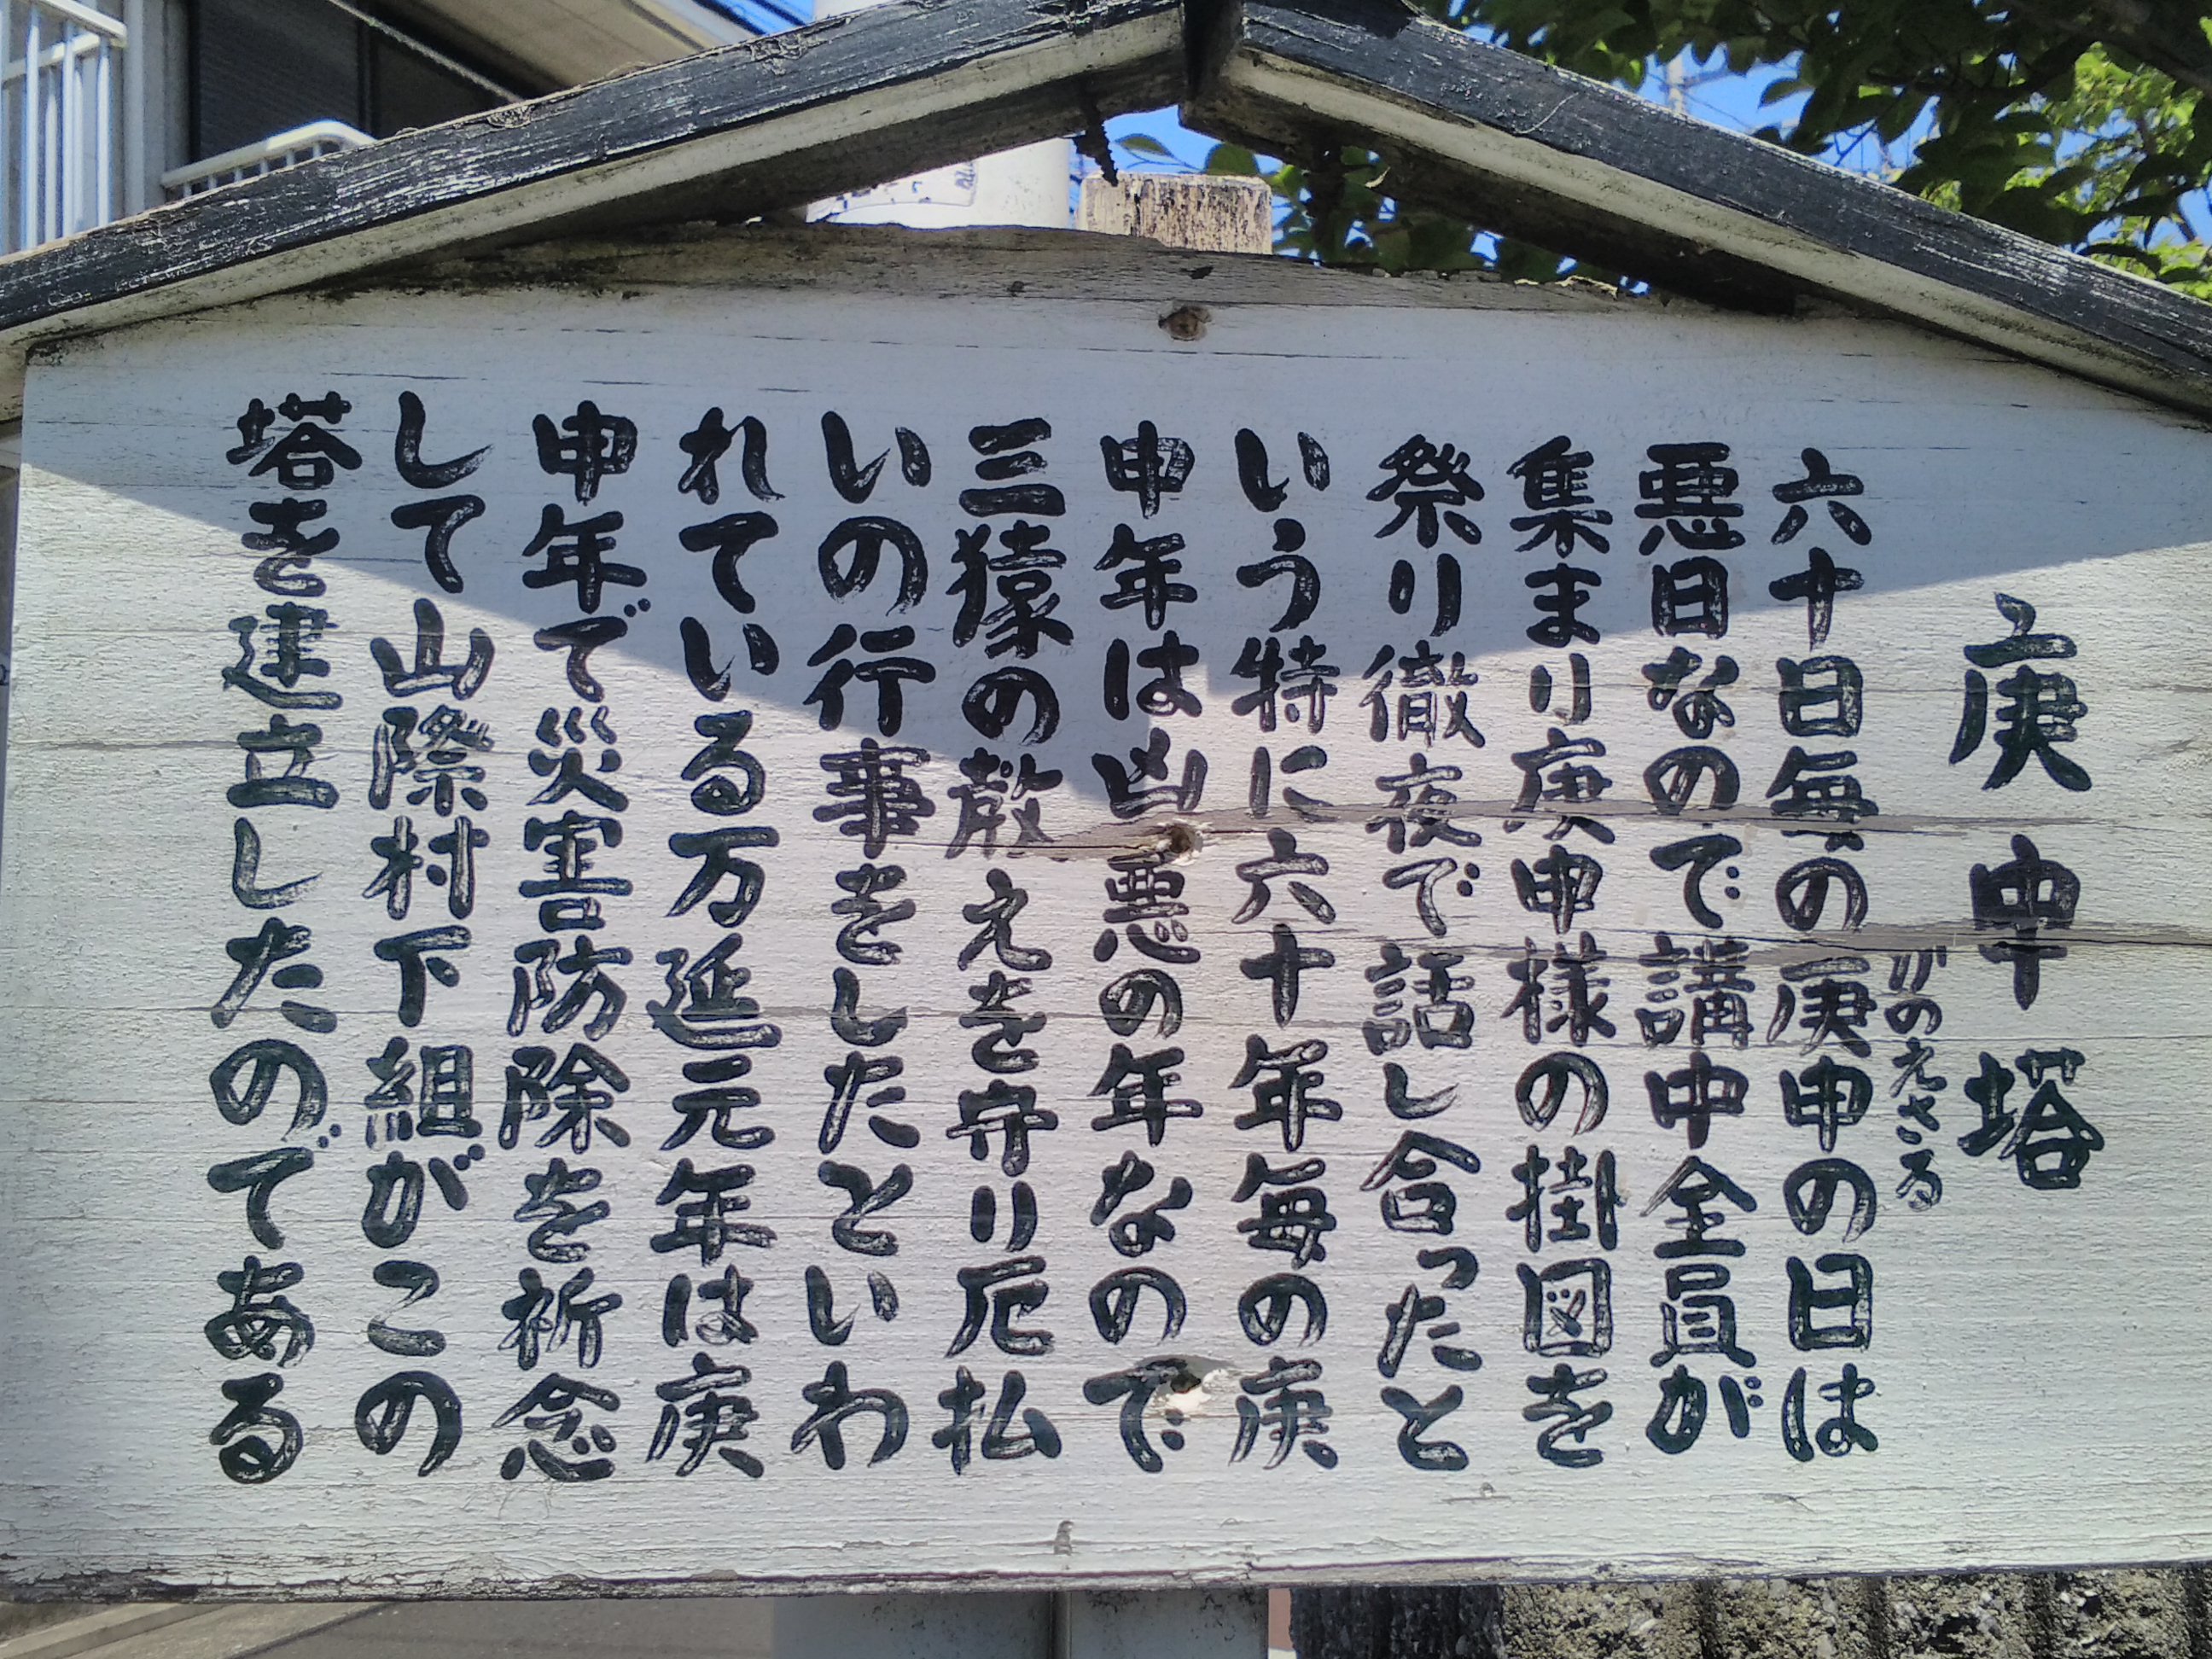 庚申塔
がのえさる
六十日毎の庚申の日は
悪日なので講中全員が
集まり庚申様の掛図を
祭り徹夜で話し合ったと
いう特に六十年毎の庚
申年は凶悪の年なので
三猿の教えを守り厄払
いの行事をしたといわ
れている万延元年は庚
申年で災害防除を祈念
して山際村下組がこの
塔を建立したのである